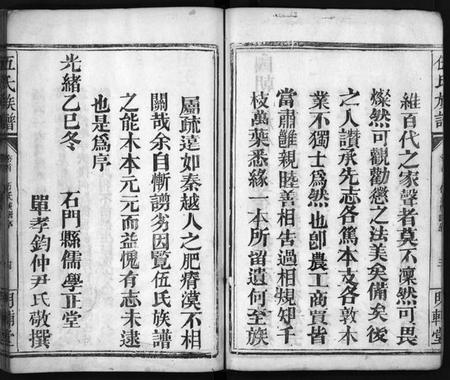 維百代之家聲者莫不凜然可畏
燦然可觀勸懲之法美矣備矣後
之人讚承先志各篤本支各敦木
業不獨士爲然也卽農工商賈皆
當肅雝親睦善相告過相規矧千
枝萬葉悉緣一本所留遺何至族
明輔堂
伍氏族譜
屬疏遠如秦越人之肥瘠漠不相
關哉余自慚謭劣因覽伍氏族譜
之能木本元元而益愧有志未逮
也是爲序
光緒乙巳冬 石門縣儒學正堂
單孝鈞仲尹氏敬撰